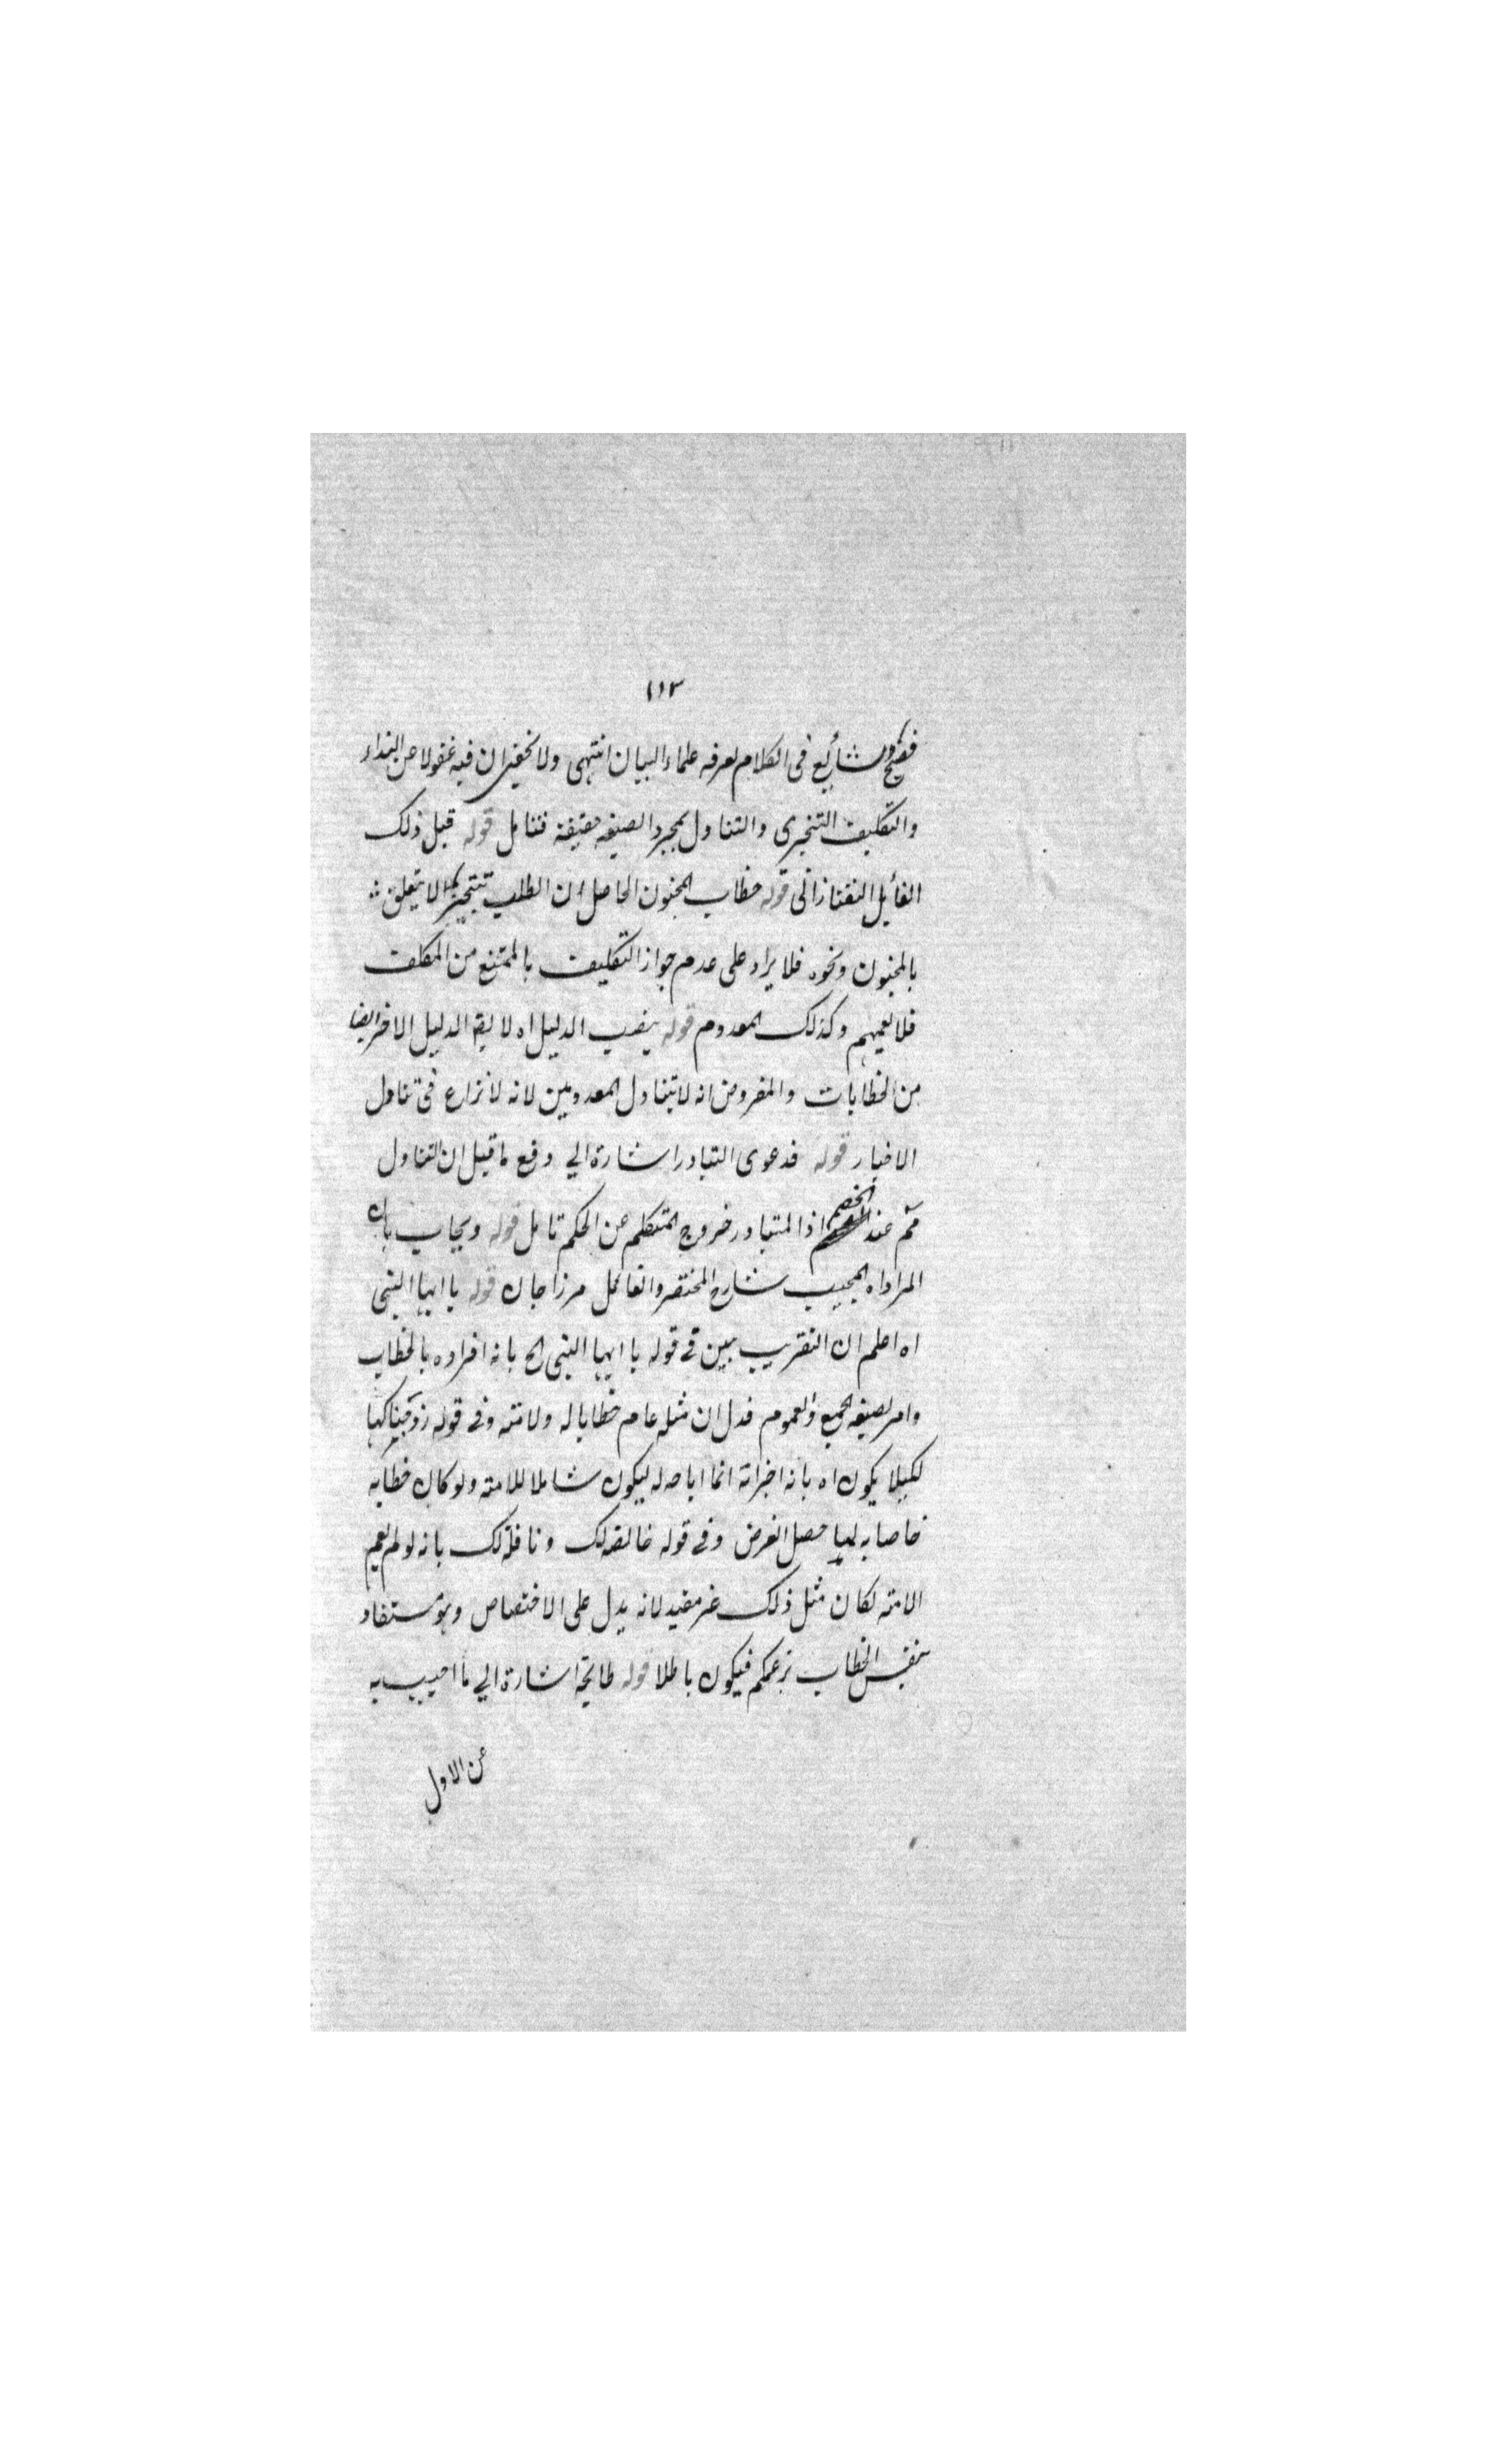 ١١٣
فصيح وشائع فى الكلام يعرفه علماء البيان انتهى ولا يخفى ان فيه غفولا عن النداء
والتكليف التنجيزى والتناول بمجرد الصيغة حقيقة فتامل قوله قيل ذلك
القائل التفتازانى قوله خطاب المجنون الحاصل ان الطلب تنجيزا لا يتعلق
بالمجنون ونحوه فلا يراد على عدم جواز التكليف بالممتنع من المكلف
فلا يعمهم وكذلك المعدوم قوله بنصب الدليل اه لا يقال الدليل الاخر ايضا
من الخطابات والمفروض انه لا يتناول المعدومين لانه لا نزاع فى تناول
الاخبار قوله فدعوى التبادر اشارة الي دفع ما قيل ان التناول
مم عند الخصم اذا المتبادر خروج المتكلم عن الحكم تامل قوله ويجاب بان
المراد اه المجيب شارح المختصر والفاضل مرزا جان قوله يا ايها النبى
اه اعلم ان التقريب يبين فى قوله يا ايها النبى الخ بانه افراده بالخطاب
وامر بصيغة الجمع والعموم فدل ان مثله عام خطابا له ولامته وفى قوله زوجناكها
لكيلا يكون اه بانه اخبر انه انما اباحه له ليكون شاملا للامته ولو كان خطابه
خاصا به لما حصل الغرض وفى قوله خالصة لك ونافلة لك بانه لو لم يعم
الامته لكان مثل ذلك غير مفيد لانه يدل على الاختصاص وهو مستفاد
بنفس الخطاب بزعمكم فيكون باطلا قوله طائحة اشارة الي ما اجيب به
عن الاول